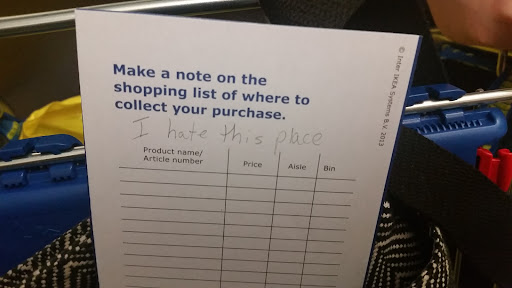 Make a note on the
shopping list of where to
collect your purchase.
I hate this place
Product name/
Article number
Price
Aisle
Bin
© Inter IKEA Systems B.V. 2013